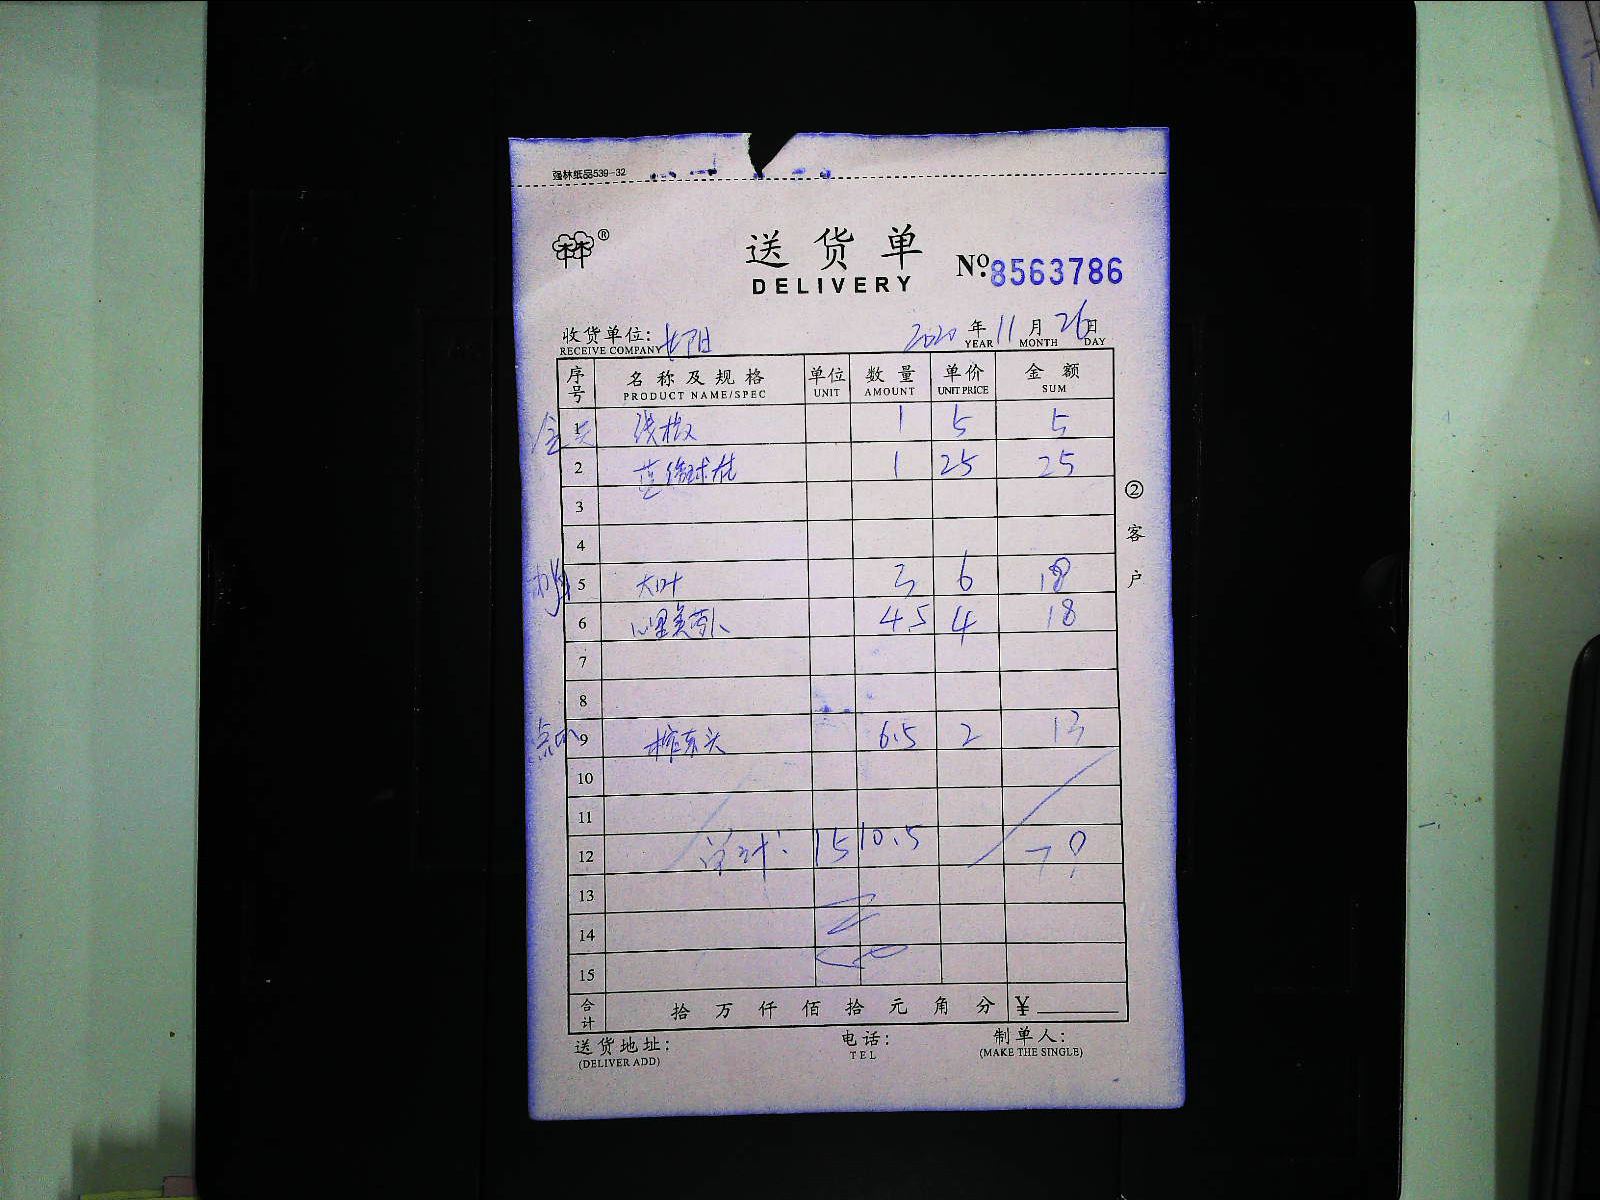 强林纸品539-32
®
送货单
DELIVERY
№ 8563786
收货单位: 长阳 2020年11月26日
RECEIVE COMPANY YEAR MONTH DAY
序号 名称及规格 单位 数量 单价 金额
PRODUCT NAME/SPEC UNIT AMOUNT UNIT PRICE SUM
1 线椒 1 5 5
2 球茬 1 25 25
3
4
5 大叶 3 6 18
6 心里美萝卜 4.5 4 18
7
8
9 榨东头 6.5 2 13
10
11
12 总计: 15 10.5 79
13
14
15
合计 拾 万 仟 佰 拾 元 角 分 ¥
送货地址: 电话: 制单人:
(DELIVER ADD) TEL (MAKE THE SINGLE)
②客户